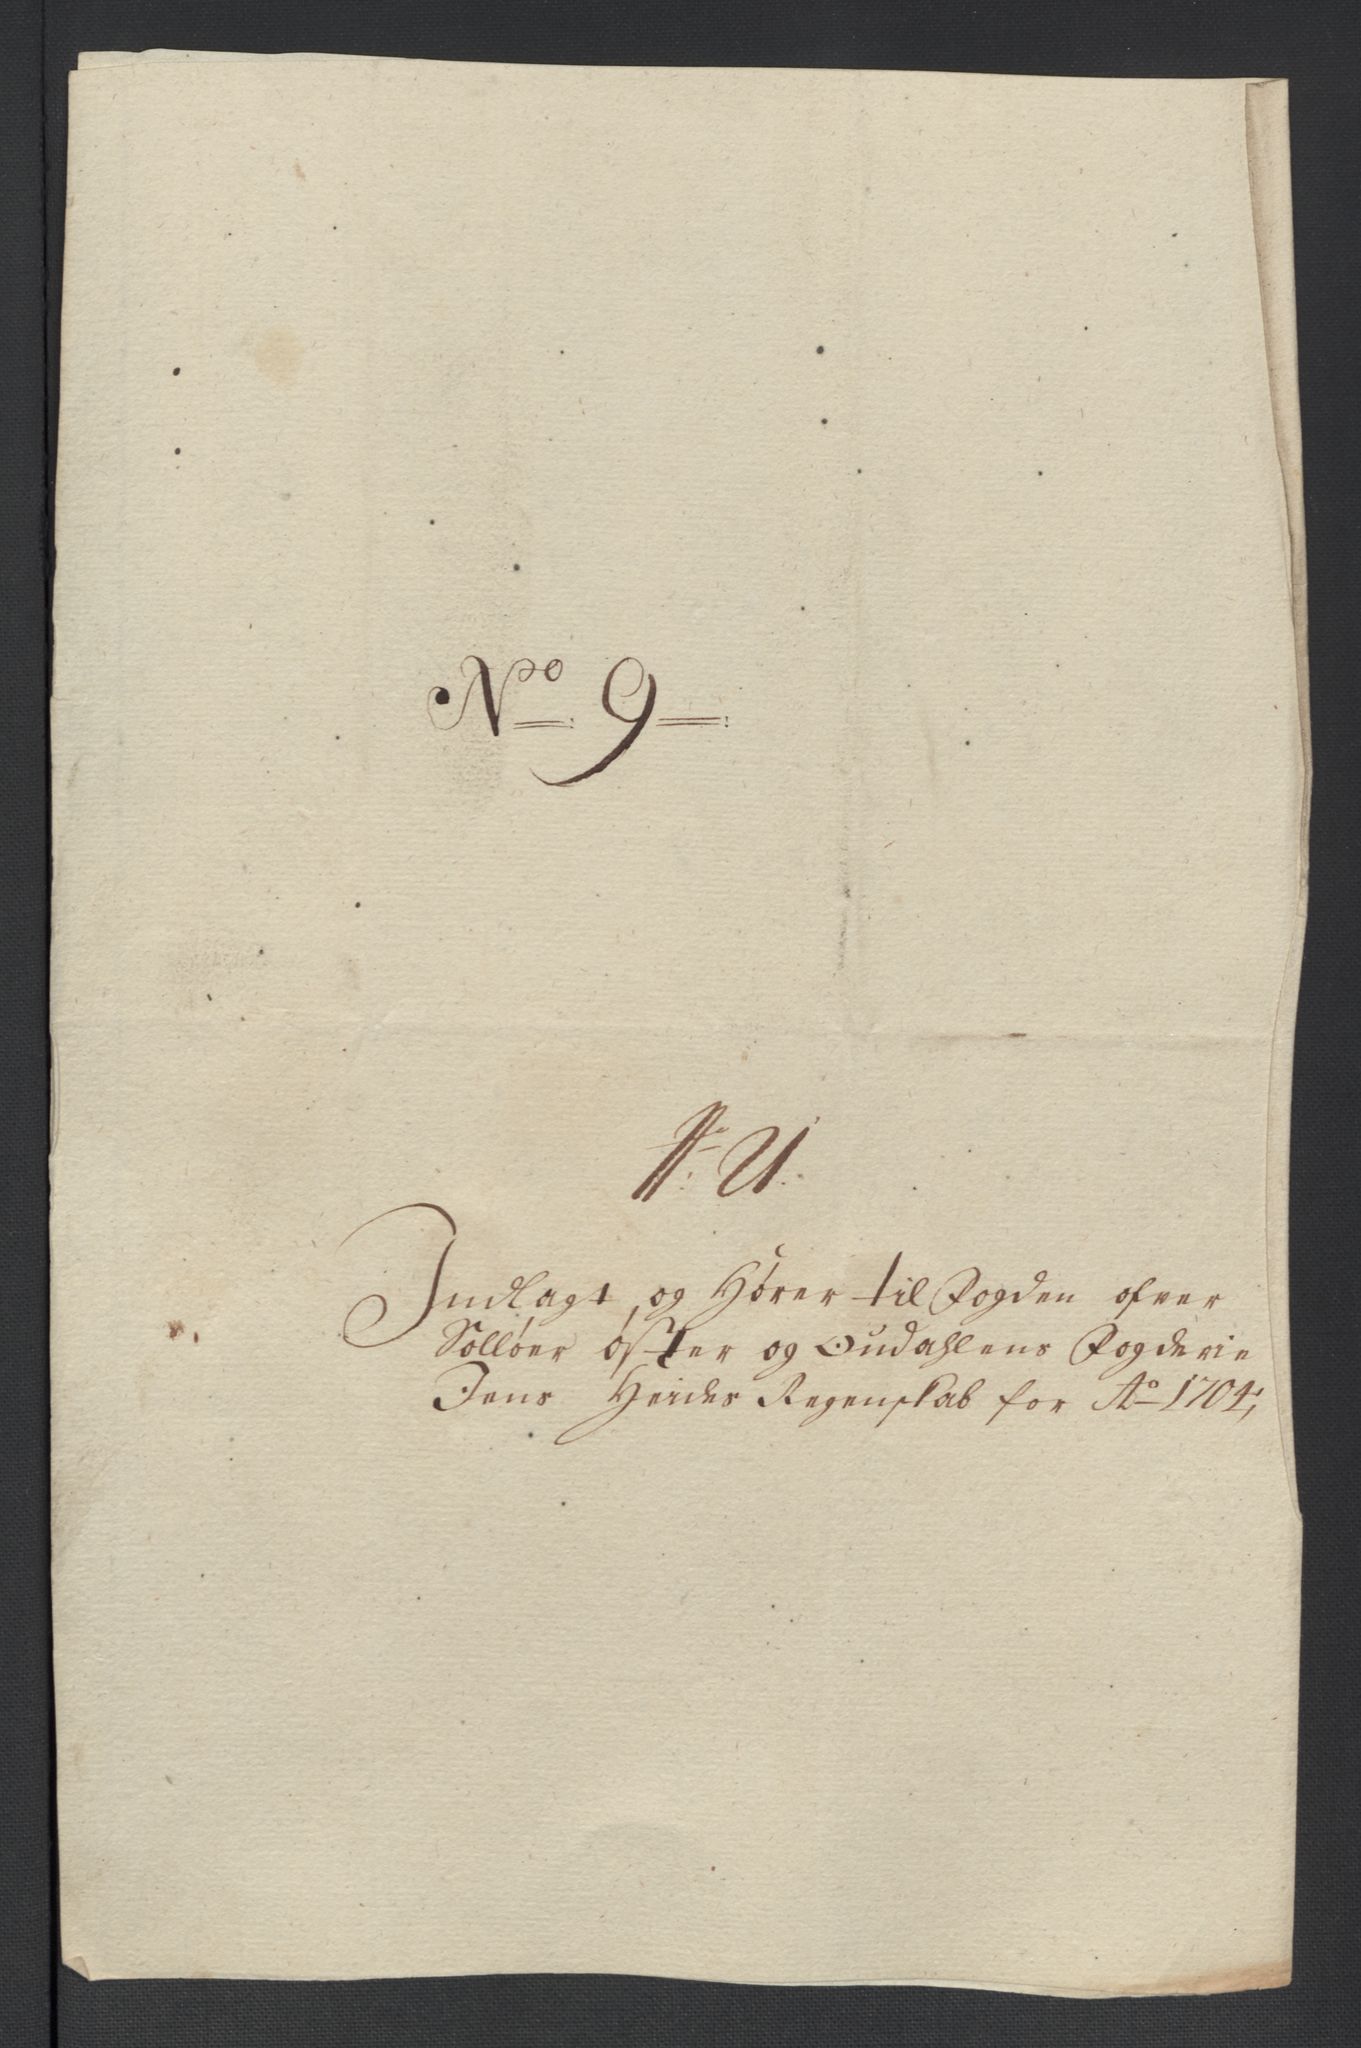 No 9
Indlagt, og Hører til Fogden ofver
Solløer øster og Oudahlens Fogderie
Jens Heides Regenskab for Ao 1704,